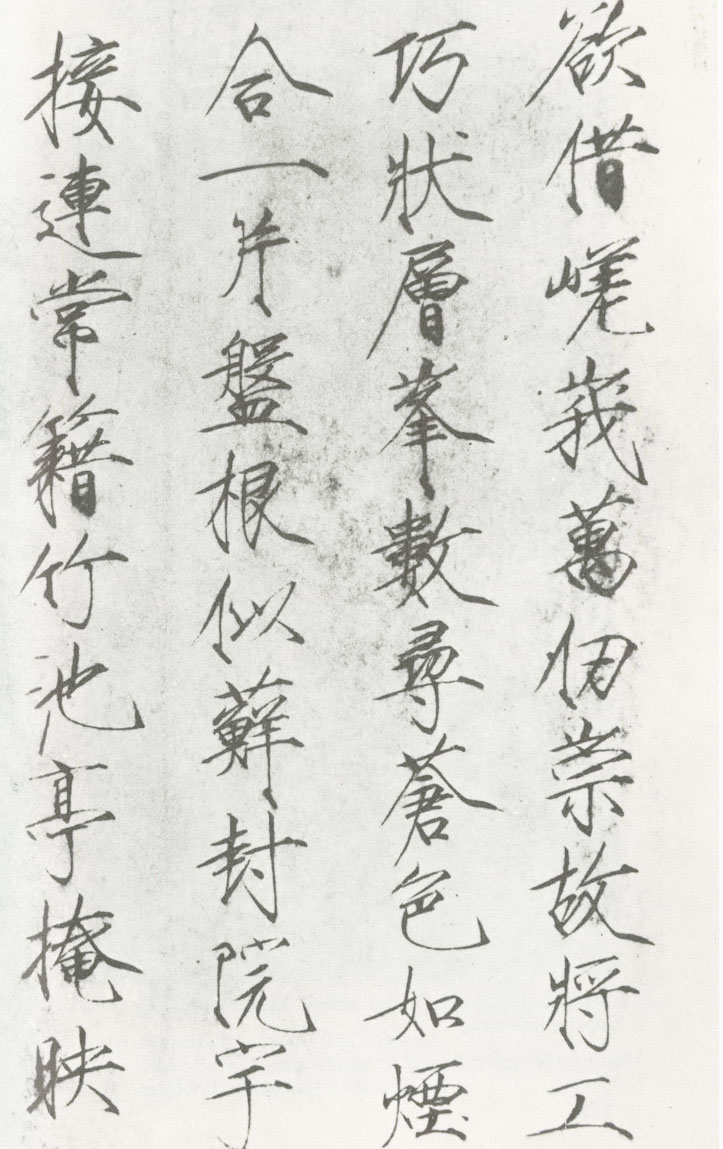 欲借嵯峩萬仞崇故將工
巧狀層峯數尋蒼色如煙
合一片盤根似蘚封院宇
接連常籍竹池亭掩映